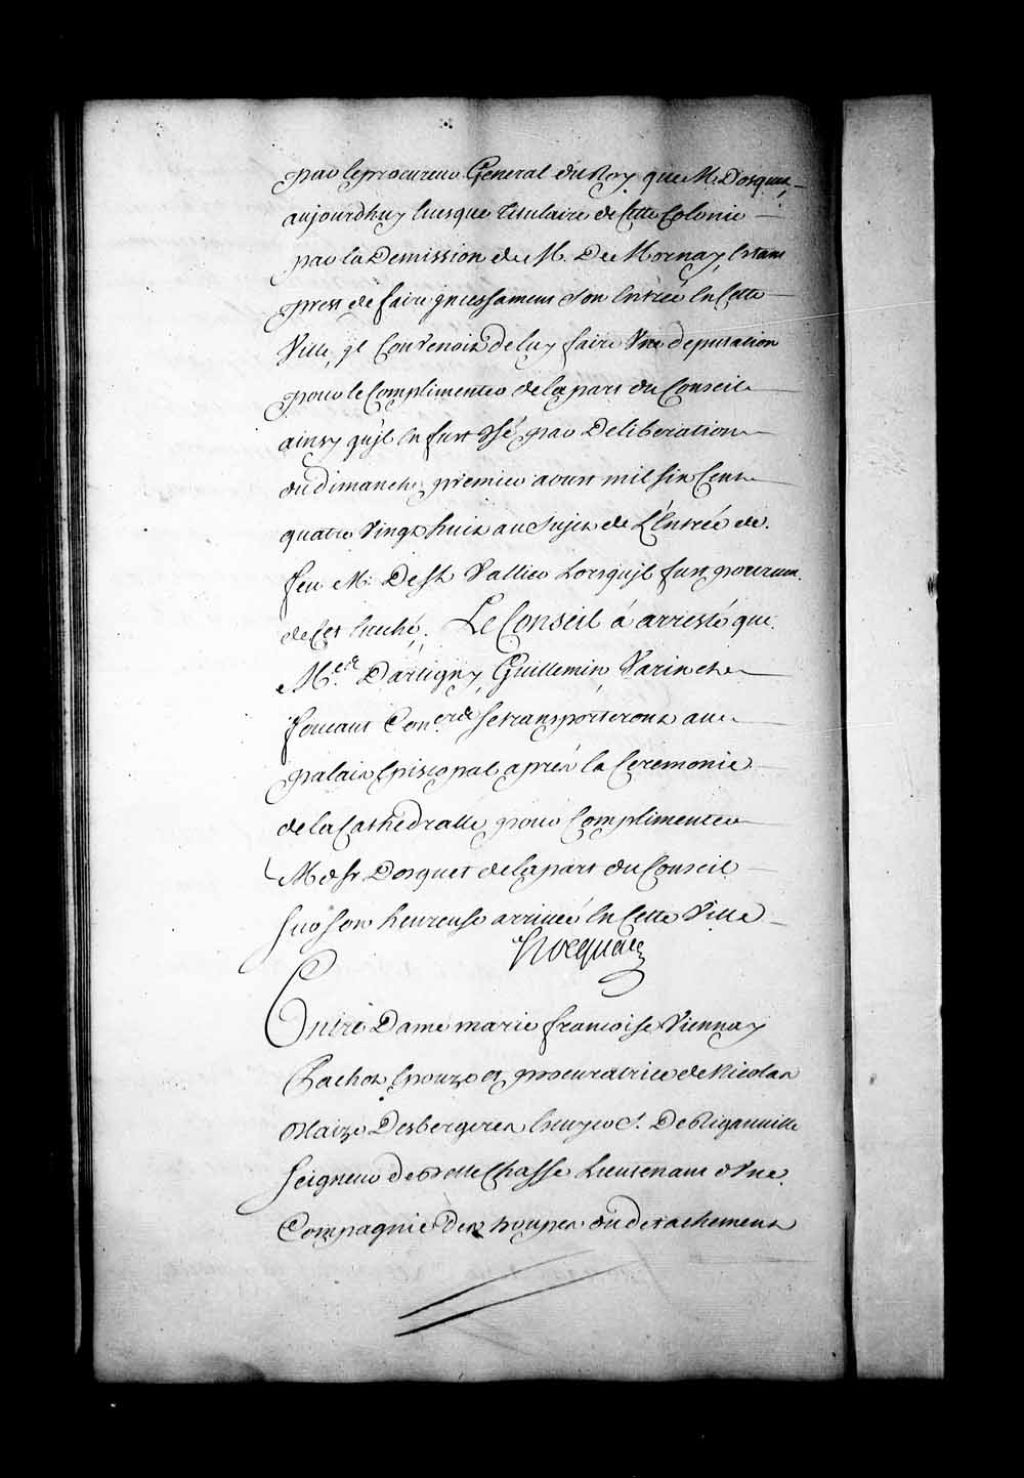 par le procureur General du Roy que M. Dosquet
aujourdhuy Evesque titulaire de Cette Colonie
par la Demission de M. De Mornay, Estant
prest de faire jncessament son Entrée En Cette
Ville, jl Convenoit de luy faire Vne deputation
pour le Complimenter de la part du Conseil
ainsy qu'jl En fust Vsé par Deliberation
du dimanche premier aoust mil six Cent
quatre Vingt huit au sujet de L'Entrée de
feu M. De St Vallier Lorsqujl fust pourveu
de Cet Evêché. Le Conseil á arresté que
Mrs Dartigny, Guillemin, Varin et
foucaut Coners se transporteront au
palais Episcopal aprés la Ceremonie
de la Cathedralle, pour Complimenter
M Dosquet de la part du Conseil
sur son heureuse arrivée En Cette Ville
Hocquart
Entre Dame marie francoise Viennay
Pachot Epouze et procuratrice de Nicolas
Blaize Desbergeres Ecuyer Sr. De Rigauville
Seigneur de Bellechasse Lieutenant d'Vne
Compagnie des troupes du detachement